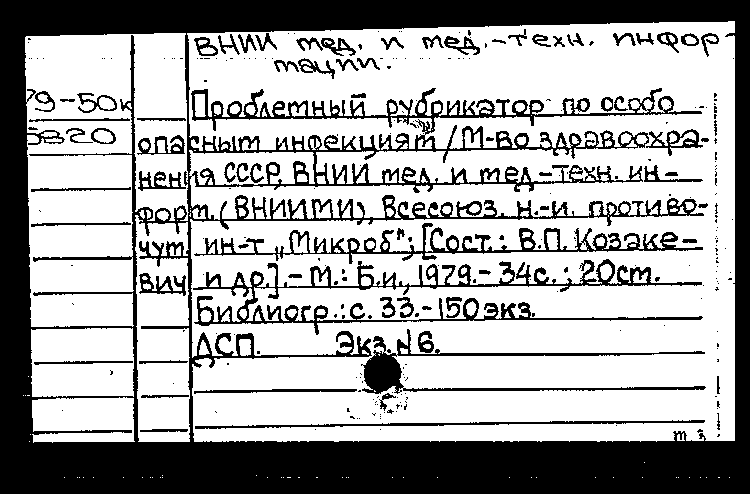 ВНИИ мед. и мед.-техн. инфор-
мации.
79-50к
Проблемный рубрикатор по особо
5820
опасным инфекциям / М-во здравоохра-
нения СССР, ВНИИ мед. и мед-техн. ин-
форм. (ВНИИМИ), Всесоюз. н.-и. противо-
чум. ин-т „Микроб"; [Сост.: В.П. Козаке-
вич и др.].- М.: Б.и., 1979.- 34с.; 20см.
Библиогр.: с. 33.- 150 экз.
ДСП. Экз. N 6.
т. 3